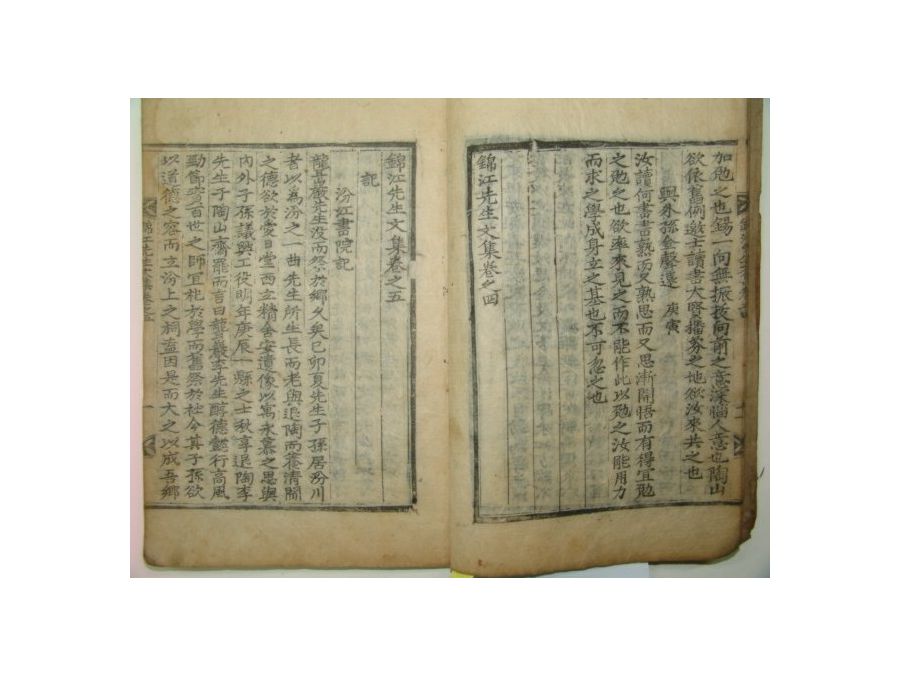 加勉之也錫一向無振拔向前之意深惱人意也陶山
欲依舊例邀士讀書大賢播芬之地欲汝來共之也
與永孫金聲遠 庚寅
汝讀何書書熟而又熟思而又思漸開悟而有得宜勉
之勉之也欲率來見之而不能作此以勉之汝能用力
而求之學成身立之基也不可忽之也
錦江先生文集卷之四
錦江先生文集卷之五
記
汾江書院記
龍巖先生沒而祭於鄉久矣己卯夏先生子孫居汾川
者以爲汾之一曲先生所生長而老與退陶而養清閒
之德欲於愛日堂西立精舍安遺像以寓永慕之思與
內外子孫議興工役明年庚辰一縣之士秋享退陶李
先生于陶山齋罷而言曰聾巖李先生醇德懿行高風
勁節實百世之師宜祀於學而舊祭於社今其子孫欲
以道德之容而立汾上之祠盍因是而大之以成吾鄉